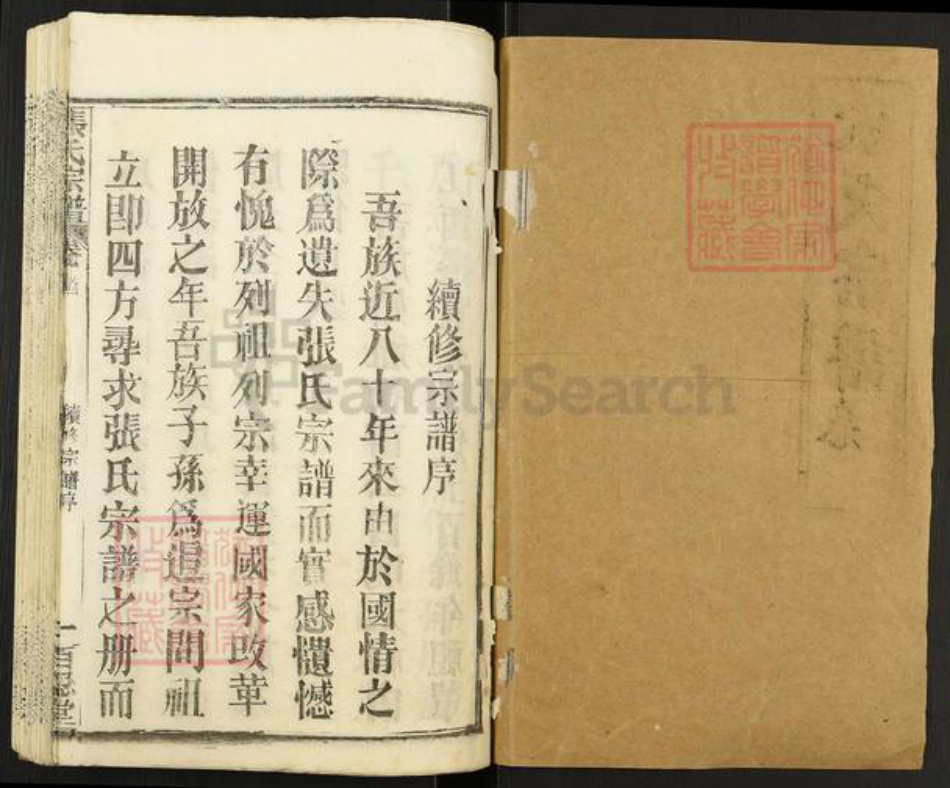 續修宗譜序
吾族近八十年來由於國情之
際爲遺失張氏宗譜而實感遺憾
有愧於列祖列宗幸運國家改革
開放之年吾族子孫爲追宗問祖
立即四方尋求張氏宗譜之册而
張氏宗譜
卷首
續修宗譜序
一
百忍堂
FamilySearch